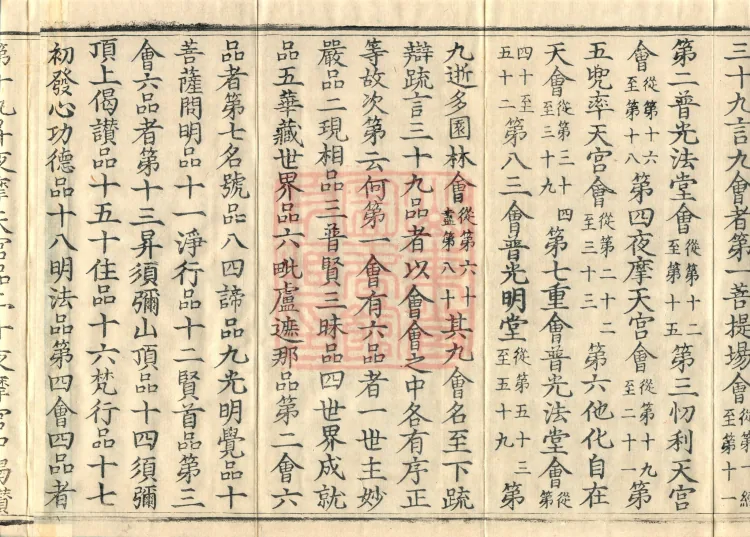 三十九言九會者第一菩提場會從第一經至第十一
第二普光法堂會從第十二至第十五第三忉利天宮
會從第十六至第十八第四夜摩天宮會從第十九至二十一第
五兜率天宮會從第二十二至三十三第六他化自在
天會從第三十四至三十九第七重會普光法堂會從第
四十至五十二第八三會普光明堂從第五十三至五十九第
九逝多園林會從第六十盡第八十其九會名至下疏
辯疏言三十九品者以會會之中各有序正
等故次第云何第一會有六品者一世主妙
嚴品二現相品三普賢三昧品四世界成就
品五華藏世界品六毗盧遮那品第二會六
品者第七名號品八四諦品九光明覺品十
菩薩問明品十一淨行品十二賢首品第三
會六品者第十三昇須彌山頂品十四須彌
頂上偈讚品十五十住品十六梵行品十七
初發心功德品十八明法品第四會四品者
第十九昇夜摩天宮品二十夜摩宮中偈讚